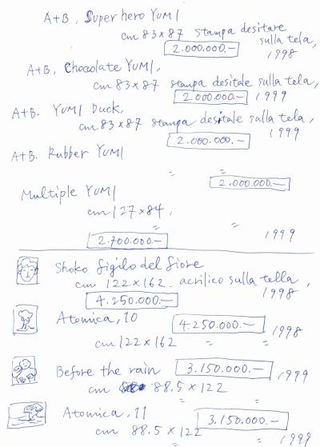 A+B, Super hero YUMI
cm 83×87 stampa desitare sulla tela,
2.000.000.— 1998
A+B, Chocolate YUMI,
cm 83×87 stampa desitale sulla tela,
2.000.000.— 1999
A+B. YUMI Duck,
cm 83×87 stampa desitale sulla tela,
2.000.000.— 1999
A+B. Rubber YUMI
" " 2.000.000.—
Multiple YUMI
cm 127×84,
" "
2.700.000.— 1999
Shoko sigilo del fiore
cm 122×162. acrilico sulla tella,
4.250.000.— 1998
Atomica, 10 4.250.000.— 1998
cm 122×162 "
Before the rain 3.150.000.— 1999
cm 88.5×122
Atomica, 11 3.150.000.—
cm 88.5×122 " " 1999